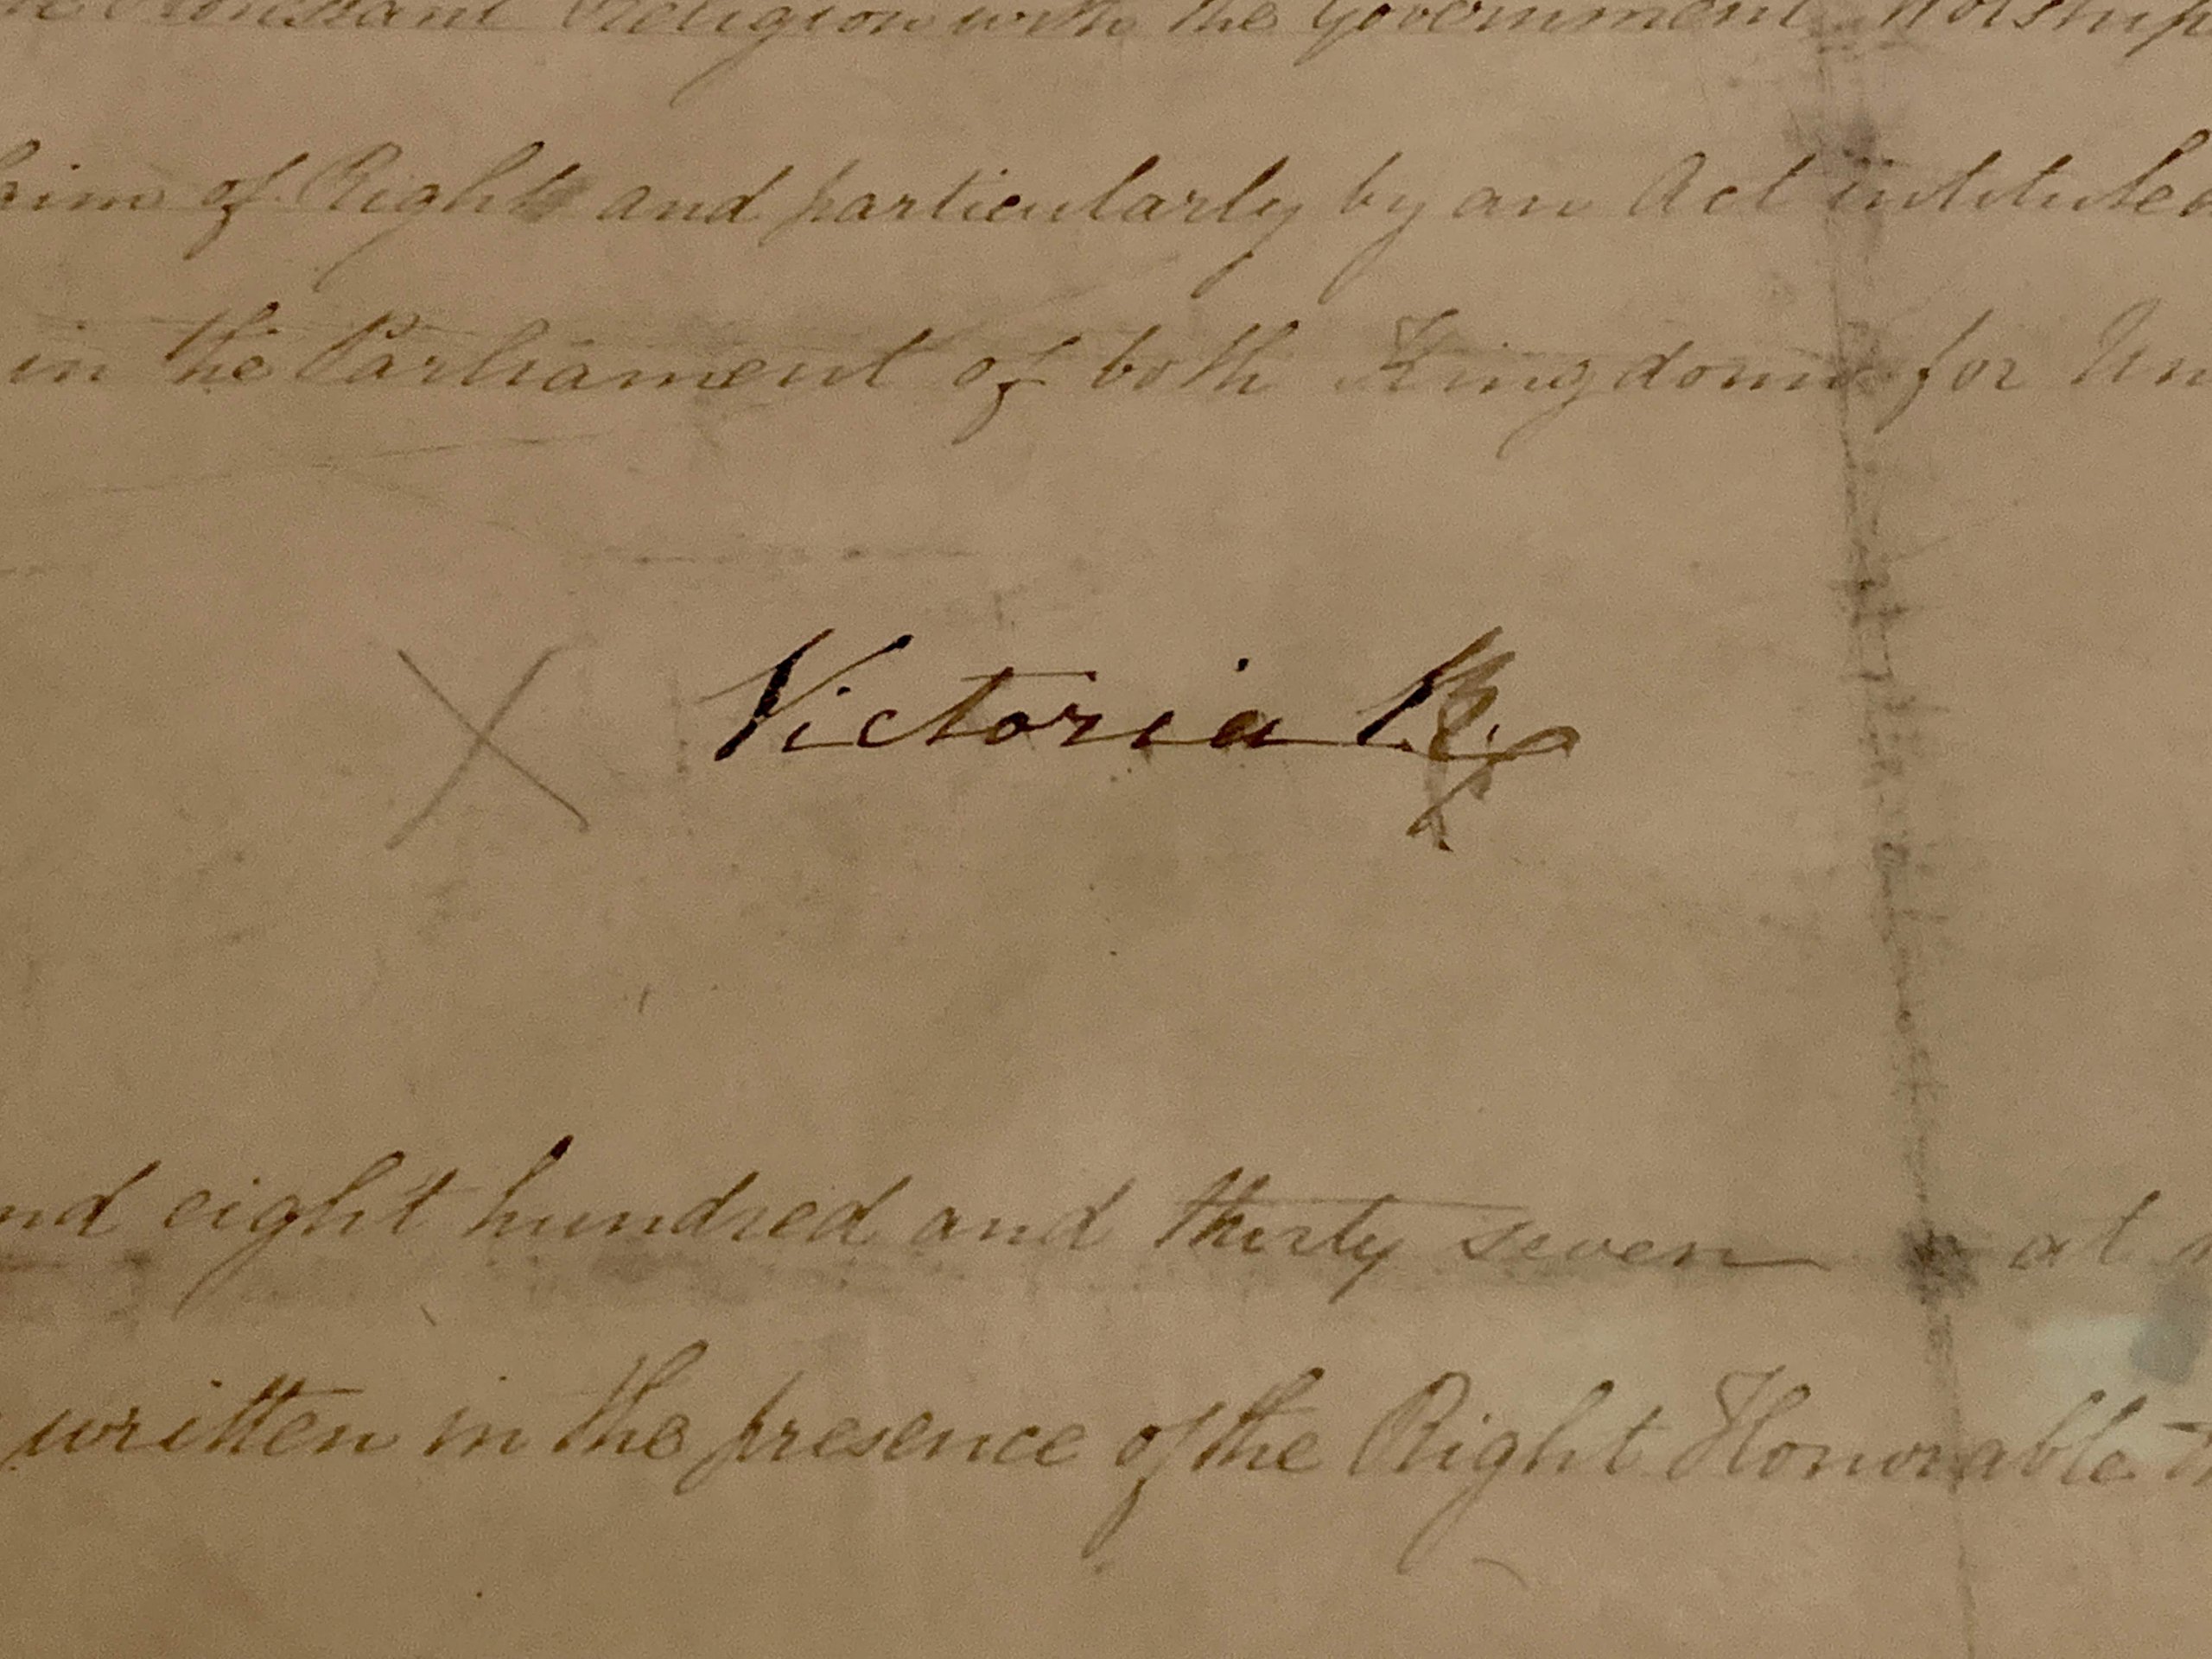 Protestant Religion with the Government Worship
aim of Rights and particularly by an Act intituled
in the Parliament of both Kingdoms for Un
X Victoria R
nd eight hundred and thirty seven at
written in the presence of the Right Honorable th